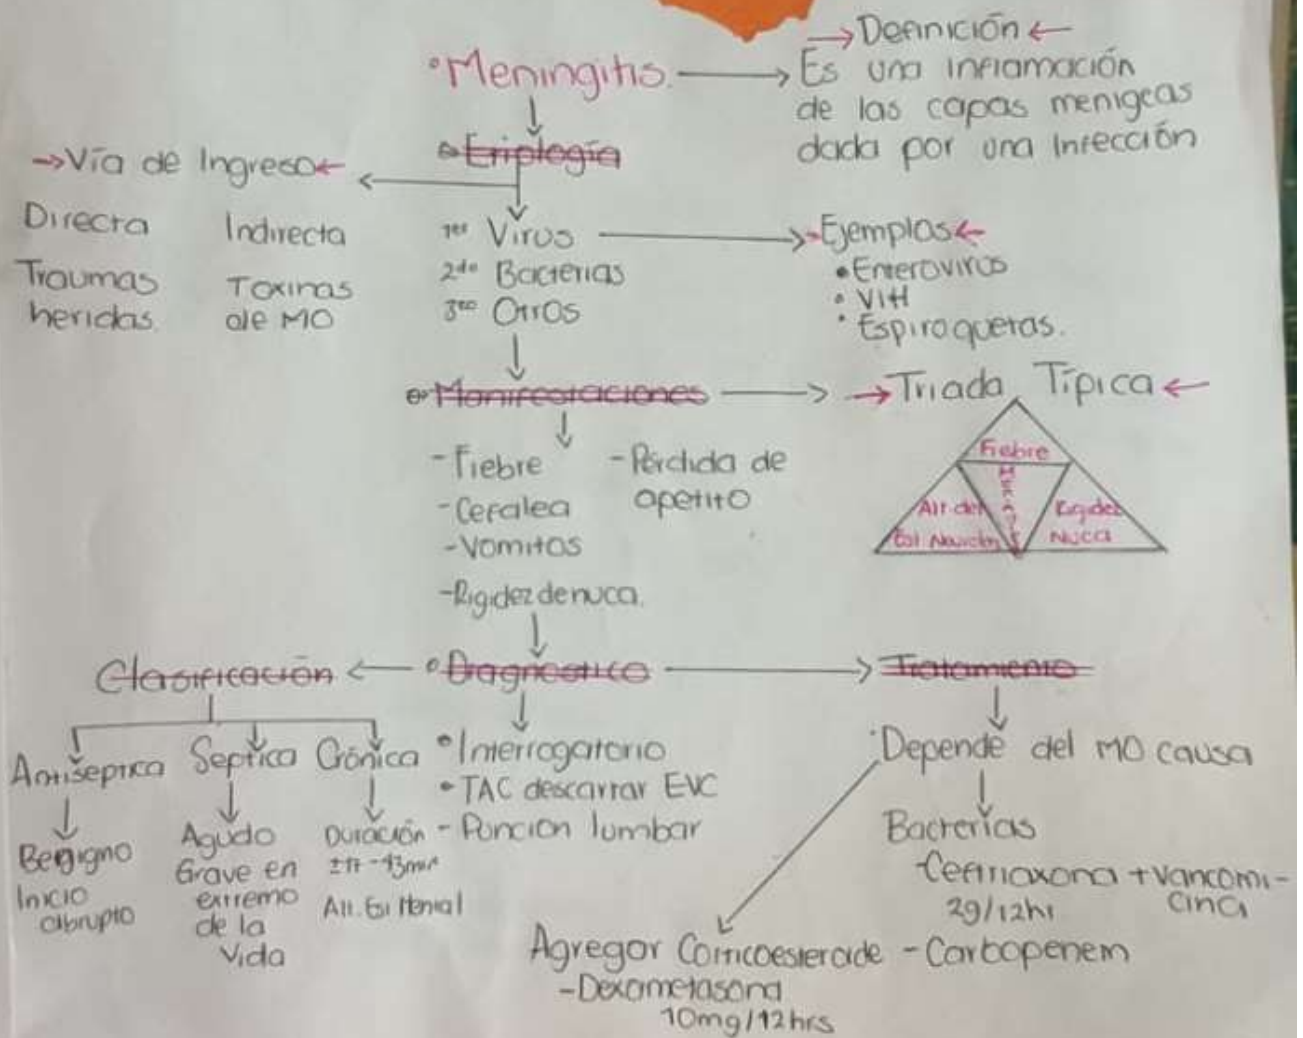 Meningitis
→Definición←
Es una inflamación
de las capas menigeas
dada por una Infección
Etiología
→Vía de Ingreso←
Directa
Traumas
heridas.
Indirecta
Toxinas
de MO
1er Virus
2do Bacterias
3ro Otros
Ejemplos←
•Enterovirus
• VIH
• Espiroquetas.
Manifestaciones
-Fiebre
-Cefalea
-Vomitos
-Rigidez de nuca.
-Pérdida de
apetito
→Triada Típica←
Fiebre
Alt. del
Est
Rigidez
Nuca
Clasificación
Diagnostico
Tratamiento
Antiseptica
Benigno
Inicio
abrupto
Septica
Agudo
Grave en
extremo
de la
Vida
Crónica
Duración
Alt. Est Mental
•Interrogatorio
•TAC descartar EVC
-Puncion lumbar
Depende del MO causa
Bacterias
-Ceftriaxona + Vancomi-
2g/12hr cina
- Carbopenem
Agregar Corticoesteroide
-Dexametasona
10mg/12hrs